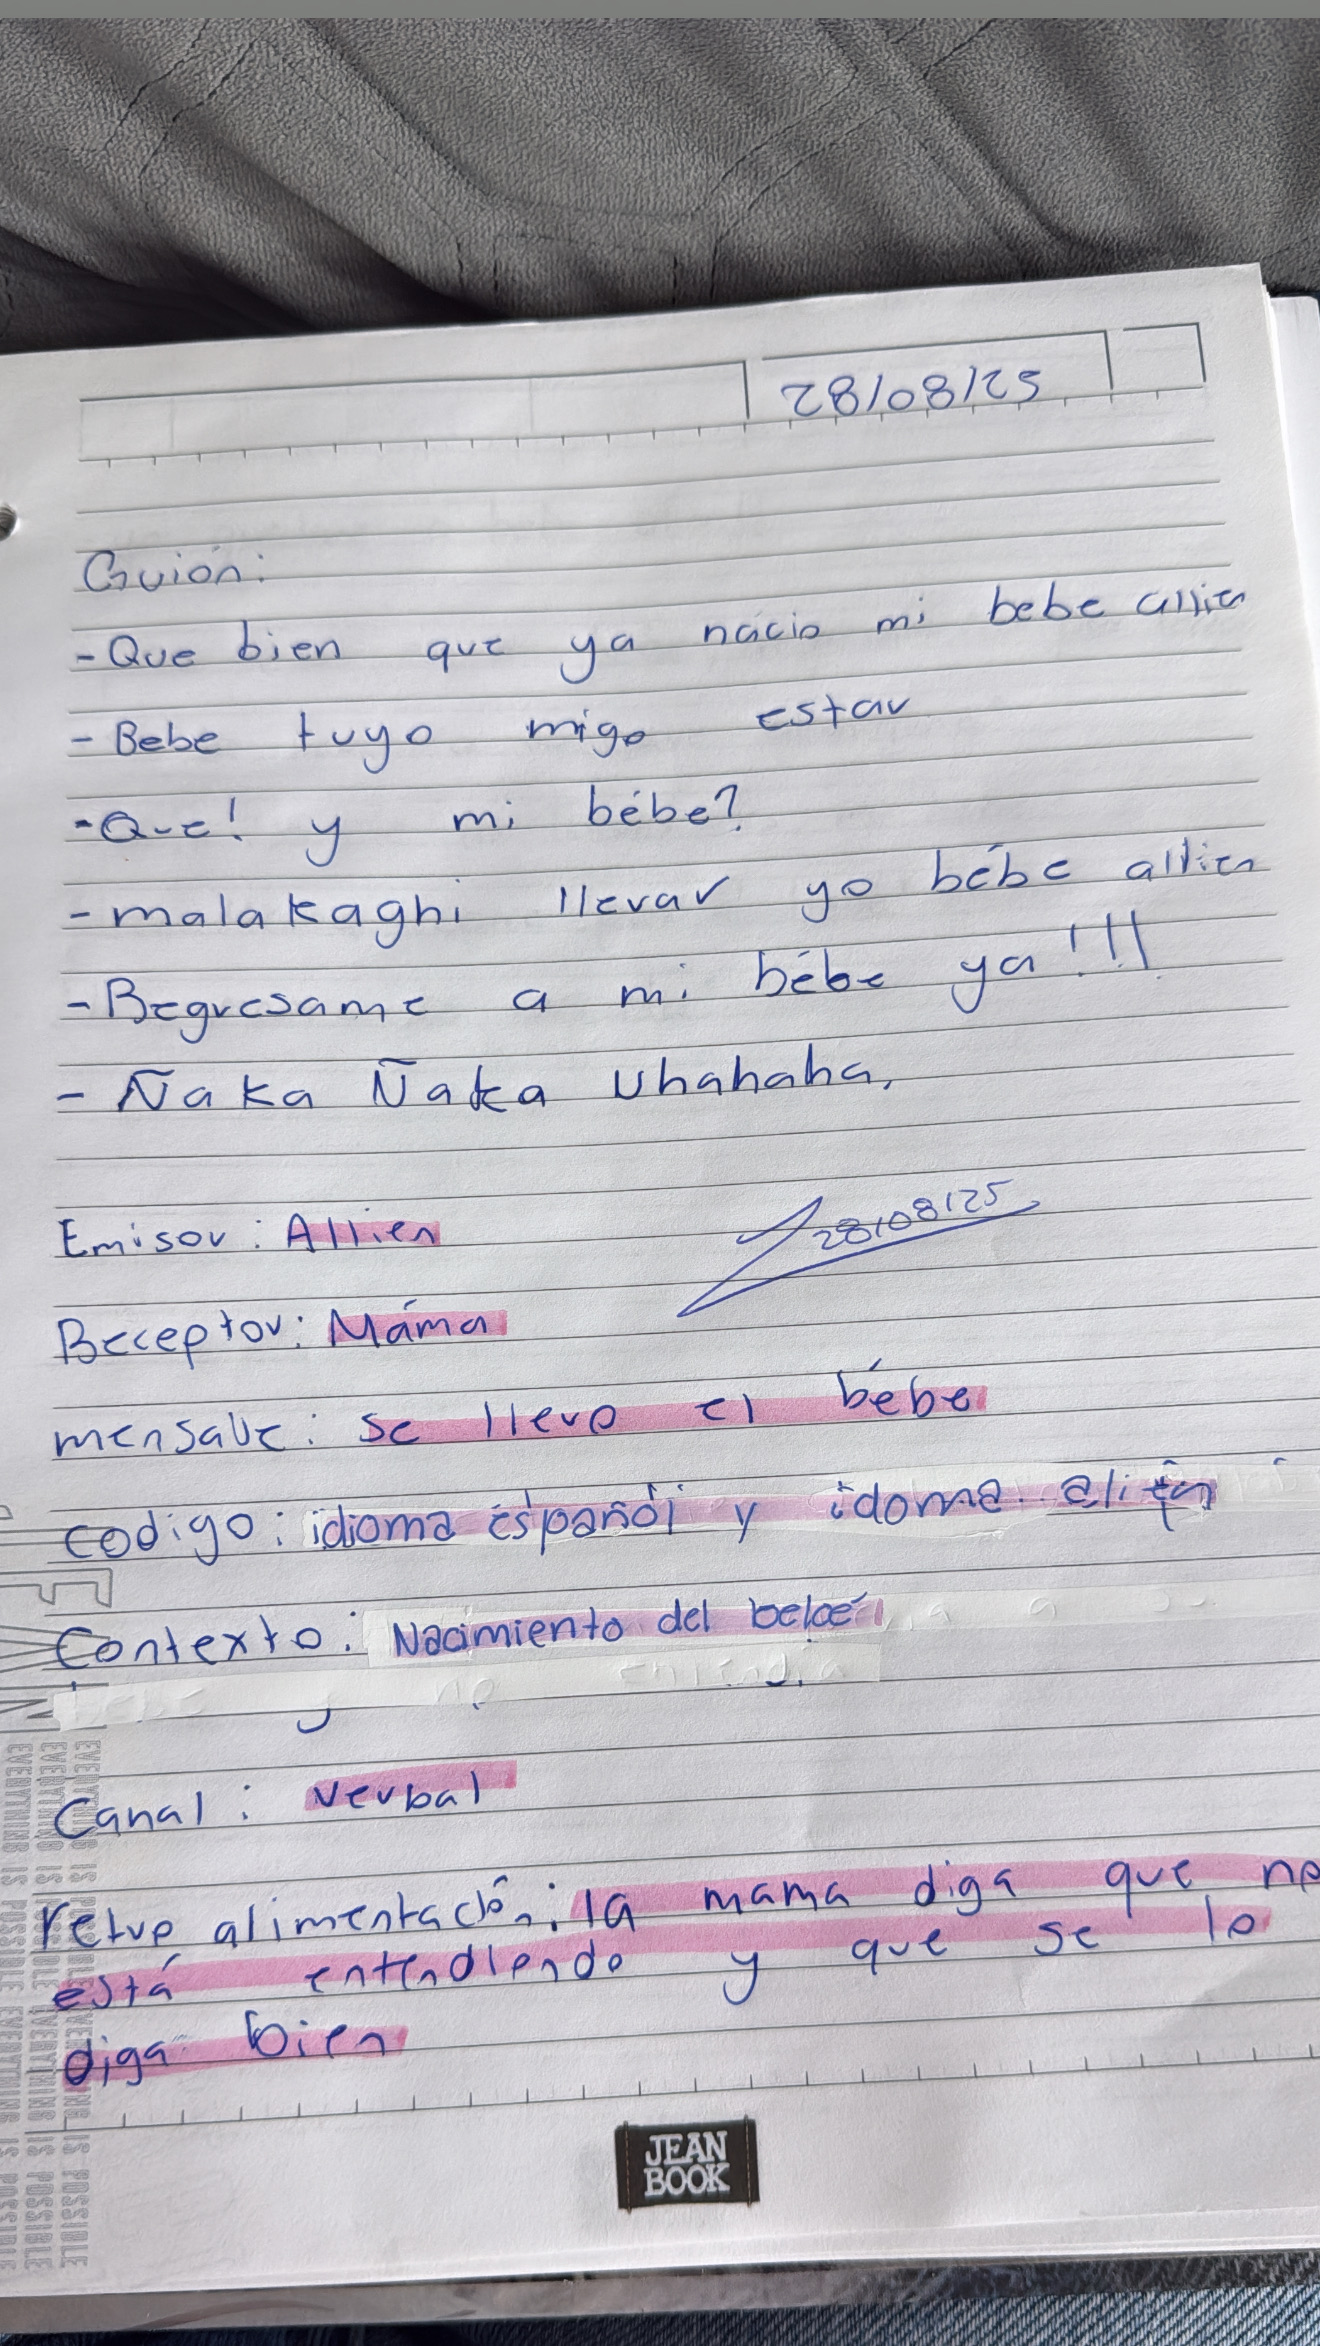 28/08/25
Guión:
- Que bien que ya nácio mi bebe allien
- Bebe tuyo migo estar
- Que! y mi bébe?
- malakaghi llevar yo bébe allien
- Regresame a mi bébe ya!!!
- Ñaka Ñaka Uhahaha,
Emisor: Allien
28/08/25
Receptor: Máma
mensaje: se llevo el bébe
codigo: idioma español y idoma alien
Contexto: Nacimiento del bebé
Canal: verbal
retro alimentación: la mama diga que no
está entendiendo y que se lo
diga bien
JEAN
BOOK
EVERYTHING IS POSSIBLE EVERYTHING IS POSSIBLE